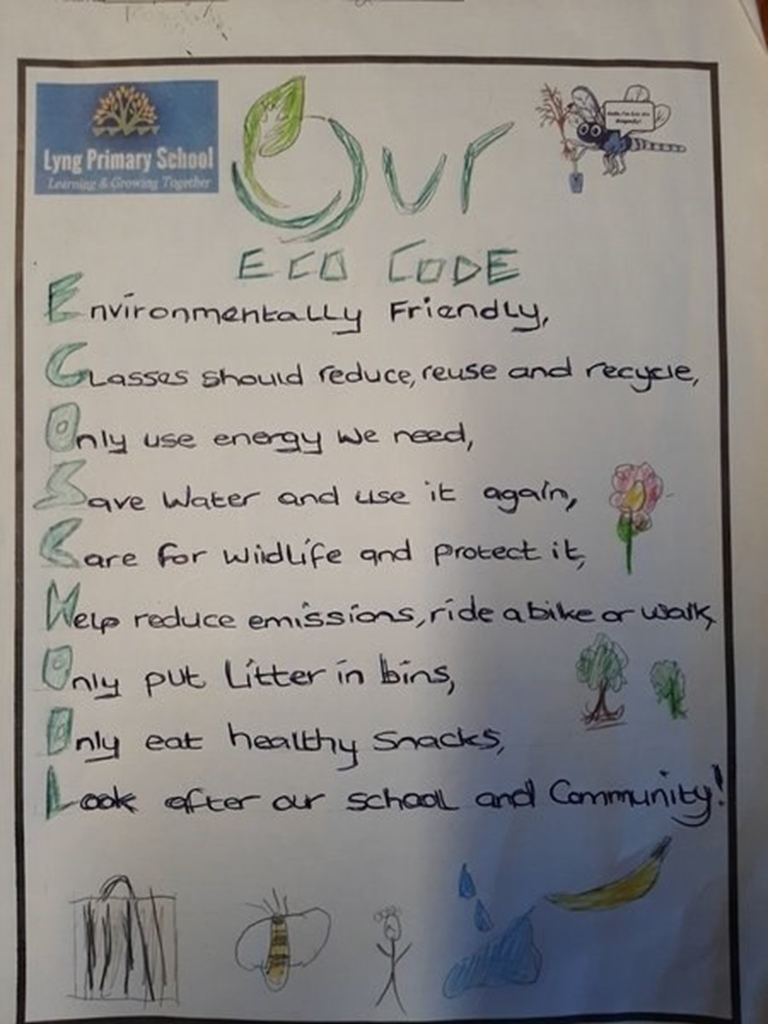 Lyng Primary School
Learning & Growing Together
Our
ECO CODE
Environmentally Friendly,
Classes should reduce, reuse and recycle,
Only use energy we need,
Save Water and use it again,
Care for Wildlife and protect it,
Help reduce emissions, ride a bike or walk,
Only put Litter in bins,
Only eat healthy snacks,
Look after our school and Community!